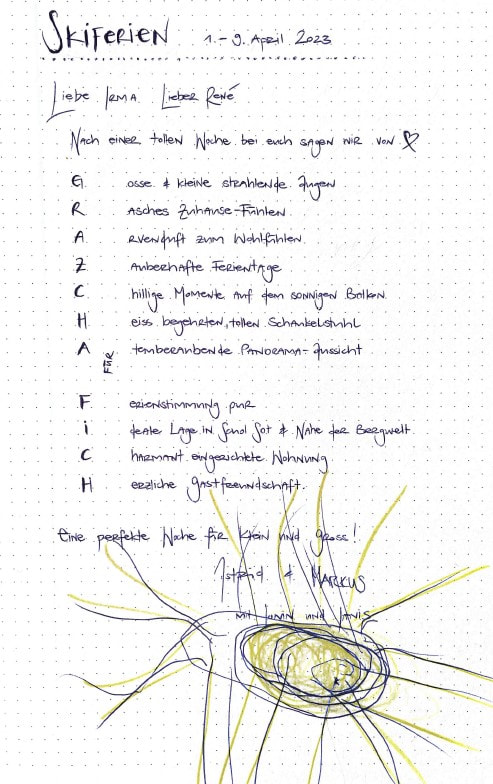 SKIFERIEN 1.-9. April 2023
Liebe IRMA Lieber René
Nach einer tollen Woche bei euch sagen wir von ♡
G osse & kleine strahlende Augen
R asches Zuhause-Fühlen
A rvenduft zum Wohlfühlen
Z auberhafte Ferientage
C hillige Momente auf dem sonnigen Balkon
H eiss begehrten, tollen Schaukelstuhl
A temberaubende PANORAMA-Aussicht
FÜR
F erienstimmung pur
i deale Lage in Scuol Sot & Nähe der Bergwelt
C harmant eingerichtete Wohnung
H erzliche Gastfreundschaft.
Eine perfekte Woche für klein und gross!
Astrid & MARKUS
mit und Janis